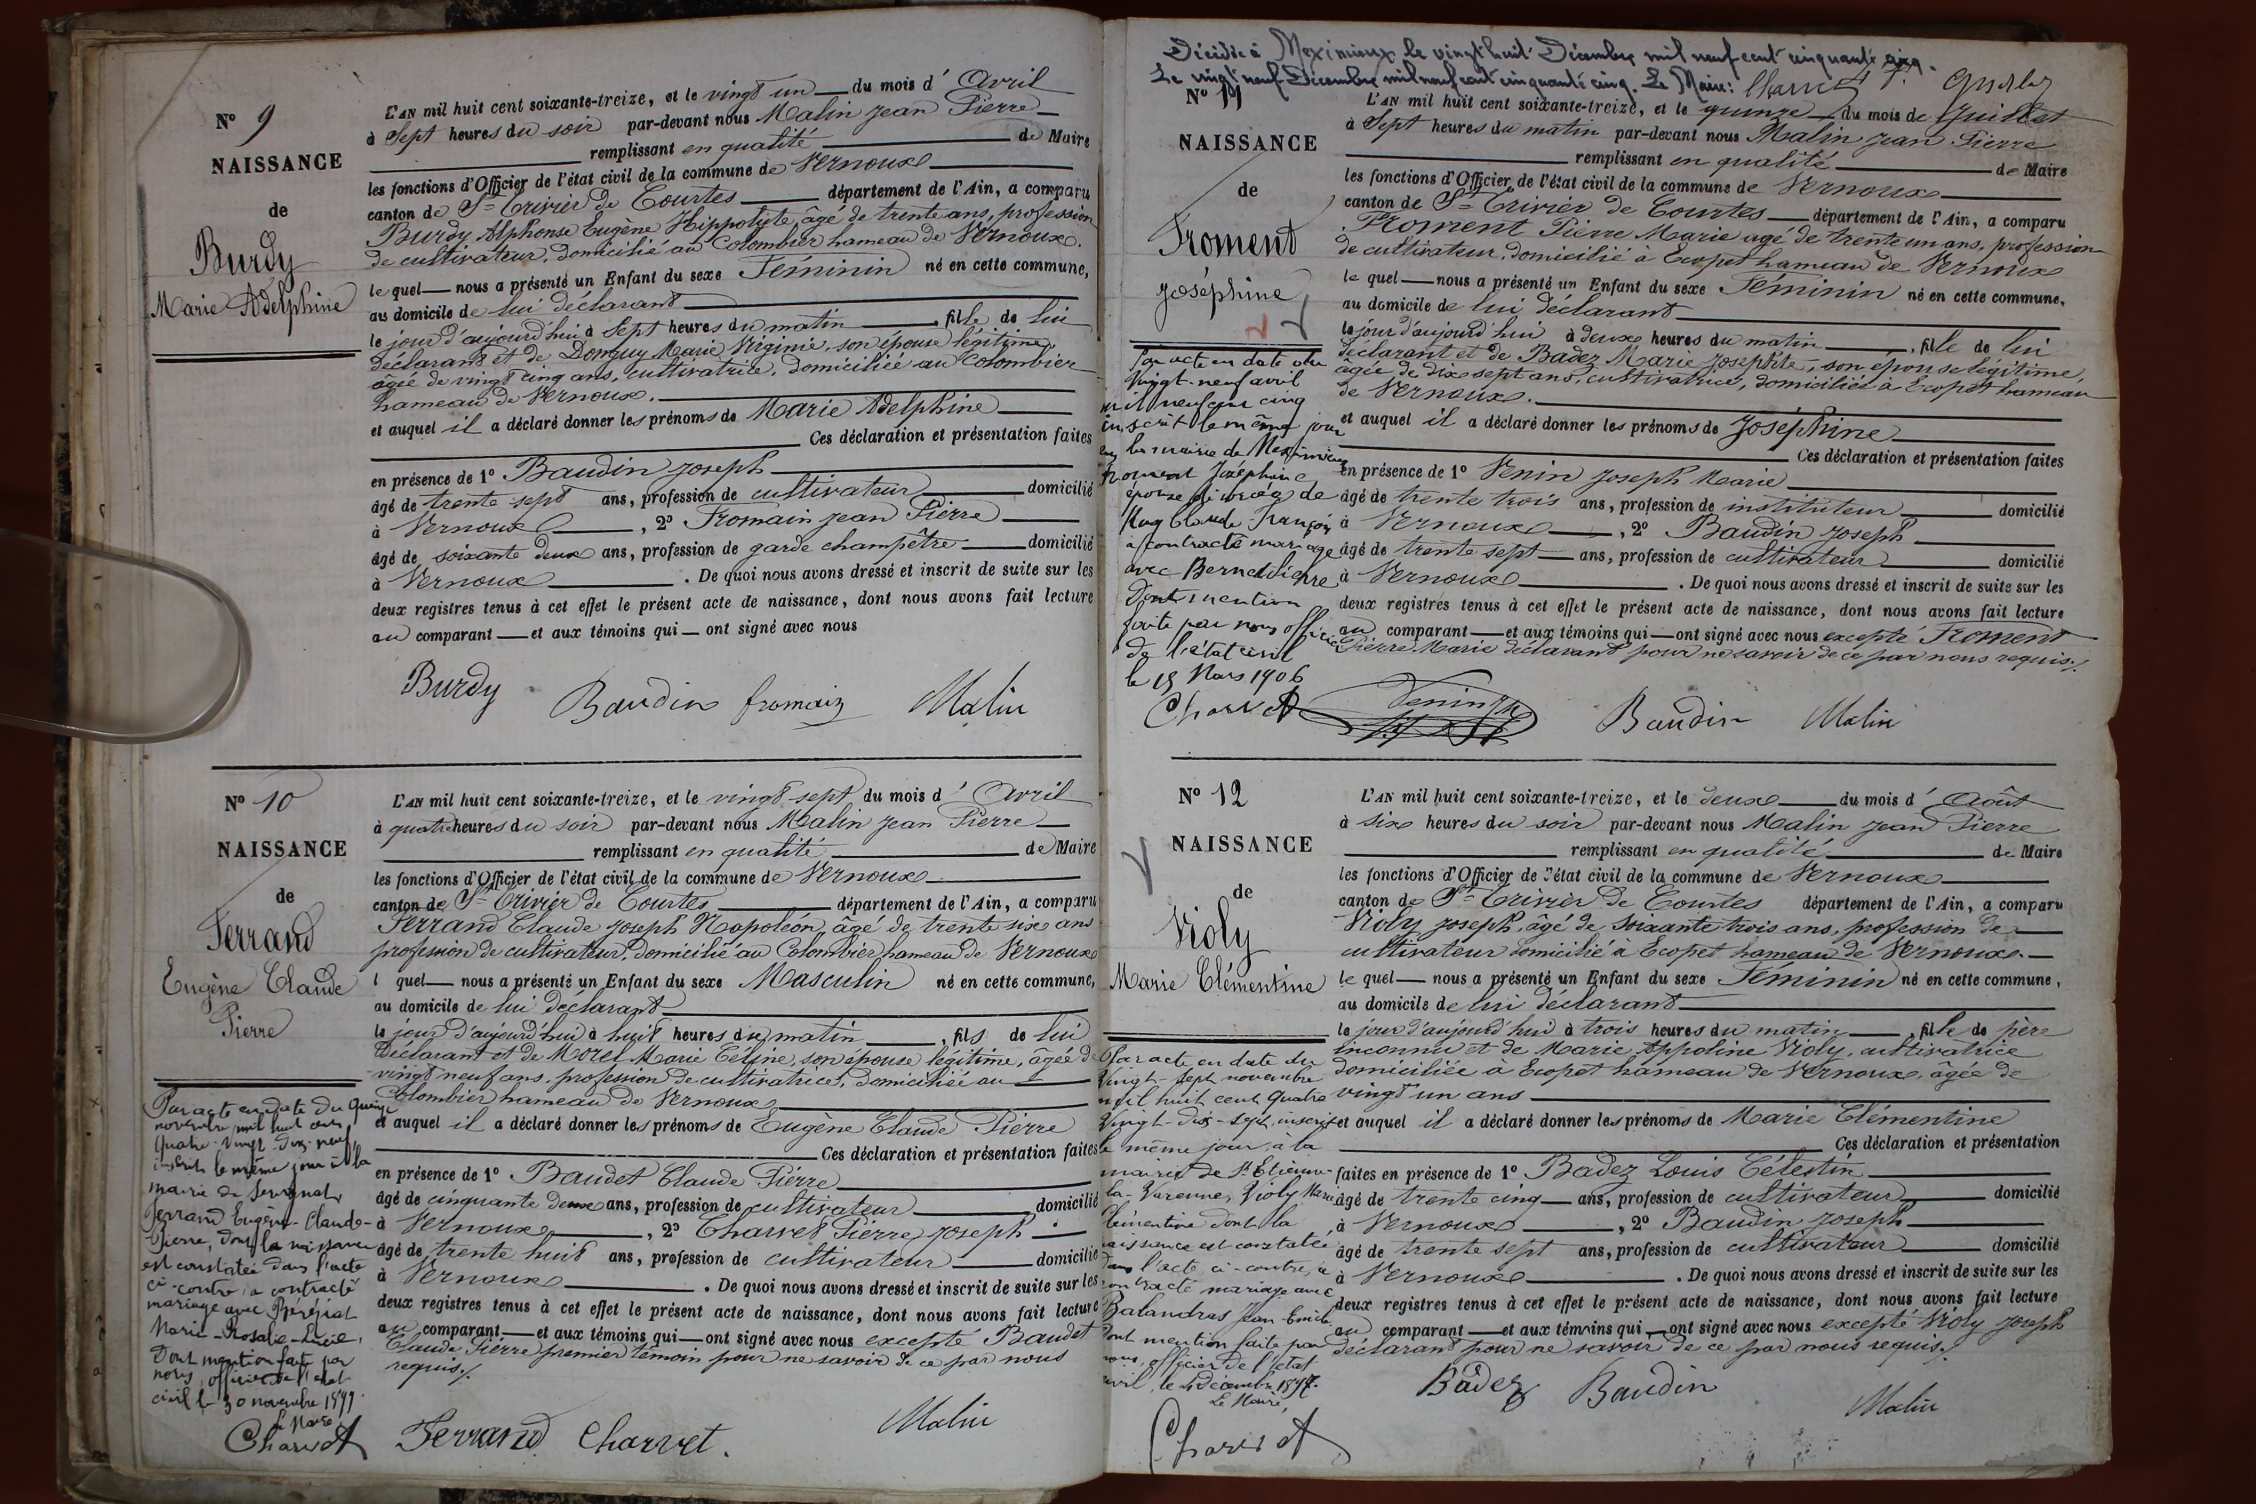 N° 9
NAISSANCE
de
Burdy
Marie Adelphine
L'AN mil huit cent soixante-treize, et le vingt un du mois d' Avril
à Sept heures du soir par-devant nous Malin Jean Pierre
remplissant en qualité de Maire
les fonctions d'Officier de l'état civil de la commune de Vernoux
canton de St Trivier de Courtes département de l'Ain, a comparu
Burdy Alphonse Eugène Hippolyte, âgé de trente ans, profession
de cultivateur, domicilié au Colombier hameau de Vernoux.
le quel nous a présenté un Enfant du sexe Féminin né en cette commune,
au domicile de lui déclarant
le jour d'aujourd'hui à Sept heures du matin, fille de lui
déclarant et de Donguy Marie Virginie, son épouse légitime,
âgée de vingt cinq ans, cultivatrice, domiciliée au Colombier
hameau de Vernoux.
et auquel il a déclaré donner les prénoms de Marie Adelphine
Ces déclaration et présentation faites
en présence de 1° Baudin Joseph
âgé de trente sept ans, profession de cultivateur domicilié
à Vernoux, 2° Fromain Jean Pierre
âgé de soixante deux ans, profession de garde champêtre domicilié
à Vernoux. De quoi nous avons dressé et inscrit de suite sur les
deux registres tenus à cet effet le présent acte de naissance, dont nous avons fait lecture
au comparant et aux témoins qui ont signé avec nous
Burdy Baudin fromain Malin
N° 10
NAISSANCE
de
Ferrand
Eugène Claude
Pierre
Par acte en date du quinze
novembre mil huit cent
quatre-vingt-dix-neuf,
inscrit le même jour à la
mairie de Servignat,
Ferrand Eugène-Claude-
Pierre, dont la naissance
est constatée dans l'acte
ci-contre, a contracté
mariage avec Béréziat
Marie-Rosalie-Lucie,
Dont mention faite par
nous, officier de l'état
civil le 30 novembre 1899.
Le Maire
Charvet
L'AN mil huit cent soixante-treize, et le vingt sept du mois d' Avril
à quatre heures du soir par-devant nous Malin Jean Pierre
remplissant en qualité de Maire
les fonctions d'Officier de l'état civil de la commune de Vernoux
canton de St Trivier de Courtes département de l'Ain, a comparu
Ferrand Claude Joseph Napoléon, âgé de trente six ans
profession de cultivateur, domicilié au Colombier hameau de Vernoux
l quel nous a présenté un Enfant du sexe Masculin né en cette commune,
au domicile de lui déclarant
le jour d'aujourd'hui à huit heures du matin, fils de lui
déclarant et de Morel Marie Céline, son épouse légitime, âgée de
vingt neuf ans, profession de cultivatrice, domiciliée au
Colombier hameau de Vernoux
et auquel il a déclaré donner les prénoms de Eugène Claude Pierre
Ces déclaration et présentation faites
en présence de 1° Baudet Claude Pierre
âgé de cinquante deux ans, profession de cultivateur domicilié
à Vernoux, 2° Charvet Pierre Joseph
âgé de trente huit ans, profession de cultivateur domicilié
à Vernoux. De quoi nous avons dressé et inscrit de suite sur les
deux registres tenus à cet effet le présent acte de naissance, dont nous avons fait lecture
au comparant et aux témoins qui ont signé avec nous excepté Baudet
Claude Pierre premier témoin pour ne savoir de ce par nous
requis./.
Ferrand Charvet. Malin
Décédée à Meximieux le vingt huit Décembre mil neuf cent cinquante cinq.
Le vingt neuf Décembre mil neuf cent cinquante cinq. Le Maire:
N° 11
NAISSANCE
de
Froment
Joséphine
Par acte en date du
vingt-neuf avril
mil neuf cent cinq
inscrit le même jour
en la mairie de Meximieux
Froment Joséphine
épouse divorcée de
Claude François
a contracté mariage
avec Pierre
Dont mention
faite par nous officier
de l'état civil
le 15 Mars 1906
Charvet
L'AN mil huit cent soixante-treize, et le quinze du mois de Juillet
à Sept heures du matin par-devant nous Malin Jean Pierre
remplissant en qualité de Maire
les fonctions d'Officier de l'état civil de la commune de Vernoux
canton de St Trivier de Courtes département de l'Ain, a comparu
Froment Pierre Marie agé de trente un ans, profession
de cultivateur, domicilié à Ecopet hameau de Vernoux
le quel nous a présenté un Enfant du sexe Féminin né en cette commune,
au domicile de lui déclarant
le jour d'aujourd'hui à deux heures du matin, fille de lui
déclarant et de Badez Marie Josephte, son épouse légitime,
agée de dix sept ans, cultivatrice, domiciliée à Ecopet hameau
de Vernoux.
et auquel il a déclaré donner les prénoms de Joséphine
Ces déclaration et présentation faites
en présence de 1° Venin Joseph Marie
âgé de trente trois ans, profession de instituteur domicilié
à Vernoux, 2° Baudin Joseph
âgé de trente sept ans, profession de cultivateur domicilié
à Vernoux. De quoi nous avons dressé et inscrit de suite sur les
deux registres tenus à cet effet le présent acte de naissance, dont nous avons fait lecture
au comparant et aux témoins qui ont signé avec nous excepté Froment
Pierre Marie déclarant pour ne savoir de ce par nous requis./.
Venin Baudin Malin
N° 12
NAISSANCE
de
Violy
Marie Clémentine
Par acte en date du
vingt-sept novembre
mil huit cent quatre
vingt-dix-sept, inscrit
le même jour à la
mairie de St Etienne-
la-Varenne, Violy Marie
Clémentine dont la
naissance est constatée
dans l'acte ci-contre, a
contracté mariage avec
Balandras Jean
Dont mention faite par
nous, officier de l'état
civil, le décembre 1897.
Le Maire,
Charvet
L'AN mil huit cent soixante-treize, et le deux du mois d' Août
à six heures du soir par-devant nous Malin Jean Pierre
remplissant en qualité de Maire
les fonctions d'Officier de l'état civil de la commune de Vernoux
canton de St Trivier de Courtes département de l'Ain, a comparu
Violy Joseph, âgé de soixante trois ans, profession de
cultivateur domicilié à Ecopet hameau de Vernoux.
le quel nous a présenté un Enfant du sexe Féminin né en cette commune,
au domicile de lui déclarant
le jour d'aujourd'hui à trois heures du matin, fille de père
inconnu et de Marie Appoline Violy, cultivatrice
domiciliée à Ecopet hameau de Vernoux, âgée de
vingt un ans
et auquel il a déclaré donner les prénoms de Marie Clémentine
Ces déclaration et présentation
faites en présence de 1° Badez Louis Célestin
âgé de trente cinq ans, profession de cultivateur domicilié
à Vernoux, 2° Baudin Joseph
âgé de trente sept ans, profession de cultivateur domicilié
à Vernoux. De quoi nous avons dressé et inscrit de suite sur les
deux registres tenus à cet effet le présent acte de naissance, dont nous avons fait lecture
au comparant et aux témoins qui ont signé avec nous excepté Violy Joseph
déclarant pour ne savoir de ce par nous requis./.
Badez Baudin Malin